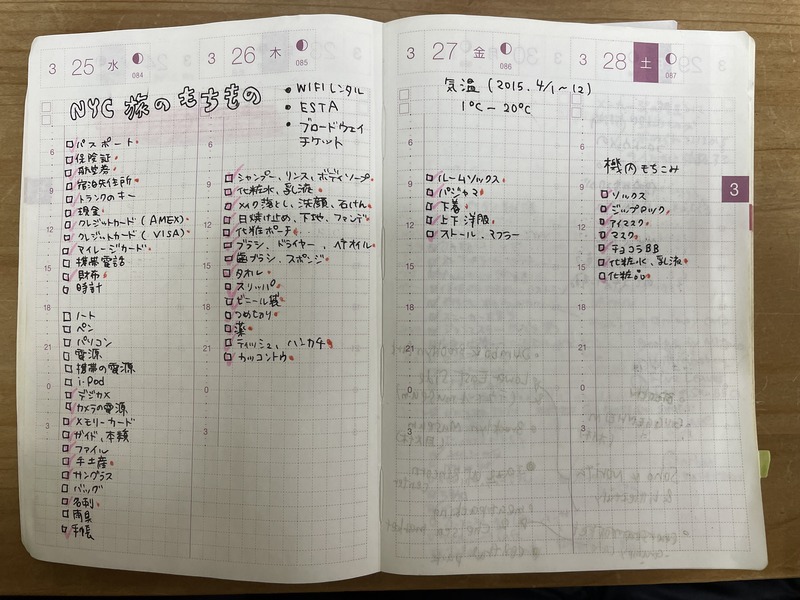 3 25 水 084
NYC 旅のもちもの
パスポート
保険証
航空券
宿泊先住所
トランクのキー
現金
クレジットカード (AMEX)
クレジットカード (VISA)
マイレージカード
携帯電話
財布
時計
ノート
ペン
パソコン
電源
携帯の電源
i-Pod
デジカメ
カメラの電源
メモリーカード
ガイド、本類
ファイル
手土産
サングラス
バッグ
名刺
雨具
手帳
6
9
12
15
18
21
0
3
3 26 木 085
• WIFIレンタル
• ESTA
• ブロードウェイ
チケット
シャンプー、リンス、ボディソープ
化粧水、乳液
メイク落とし、洗顔、石けん
日焼け止め、下地、ファンデ
化粧ポーチ
ブラシ、ドライヤー、ヘアオイル
歯ブラシ、スポンジ
タオル
スリッパ
ビニール袋
つめきり
薬
ティッシュ、ハンカチ
カッコントウ
6
9
12
15
18
21
0
3
3 27 金 086
気温 (2015. 4/1〜12)
1℃ − 20℃
ルームソックス
パジャマ
下着
上下 洋服
ストール、マフラー
6
9
12
15
18
21
0
3
3 28 土 087
機内もちこみ
ソックス
ジップロック
アイマスク
マスク
チョコラBB
化粧水、乳液
化粧品
6
9
12
15
18
21
0
3
3